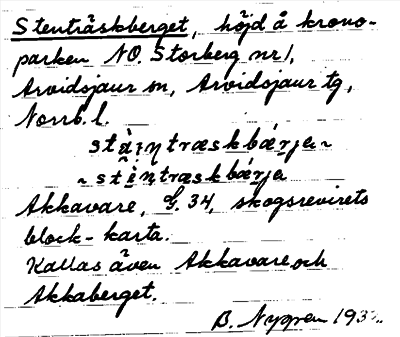 Stenträskberget, höjd å krono-
parken NO. Storberg nr 1,
Arvidsjaur sn, Arvidsjaur tg,
Norrb. l.
Akkavare, G. 34, skogsrevirets
block-karta.
Kallas även Akkavare och
Akkaberget.
B. Nygren